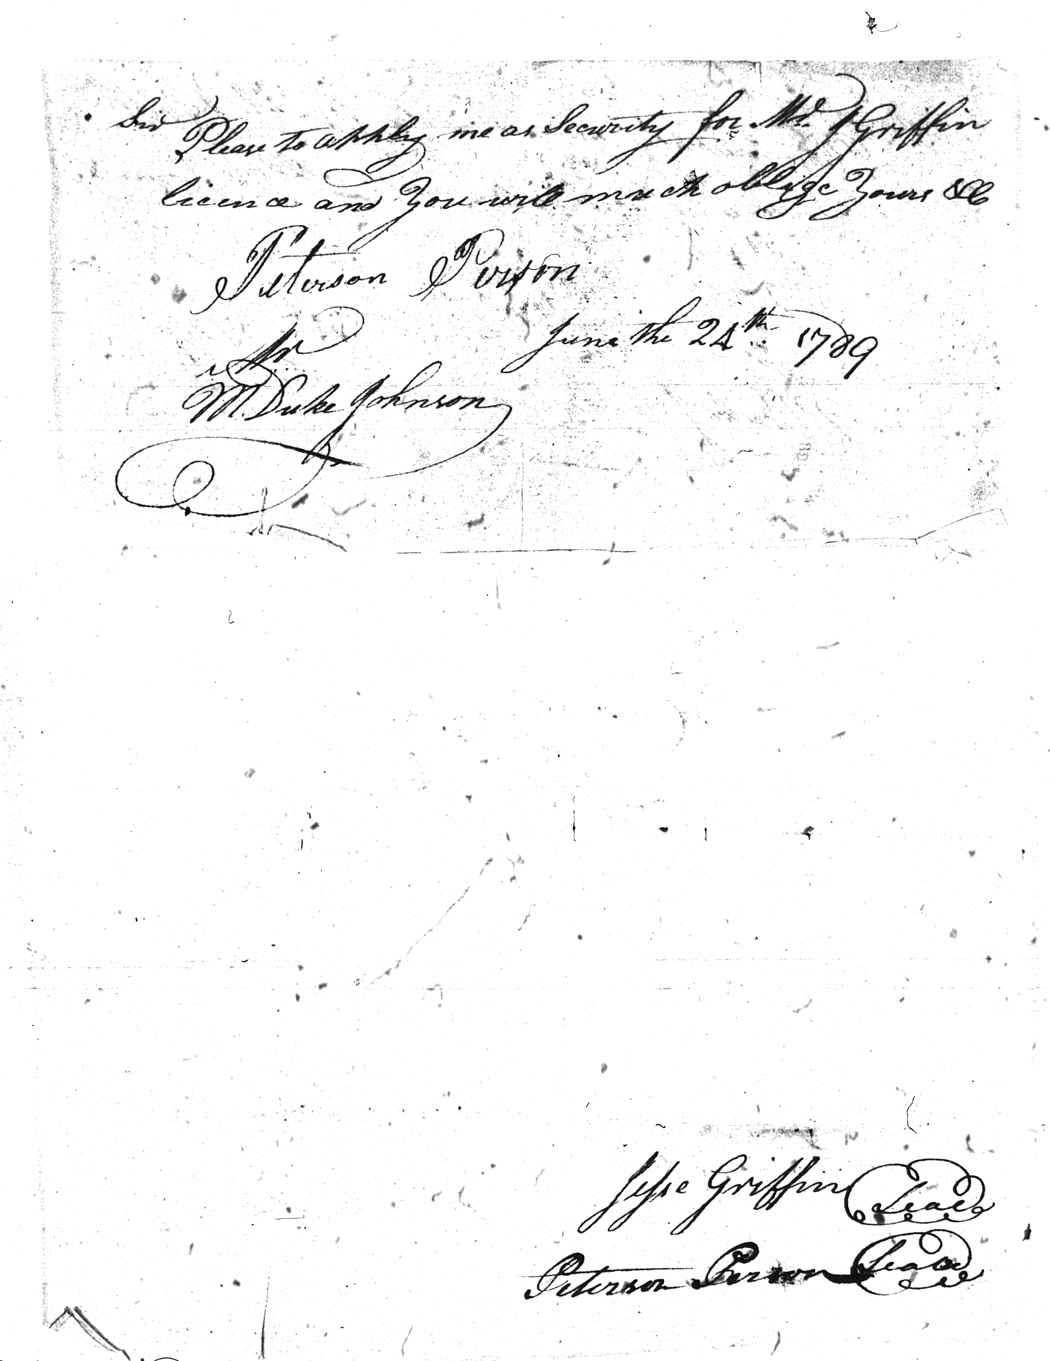 Sir
Please to apply me as Security for Mr. J Griffin
licence and You will much oblige Yours &c
Peterson Person
June the 24th. 1789
Mr
M. Duke Johnson
Jesse Griffin Seal
Peterson Person Seal